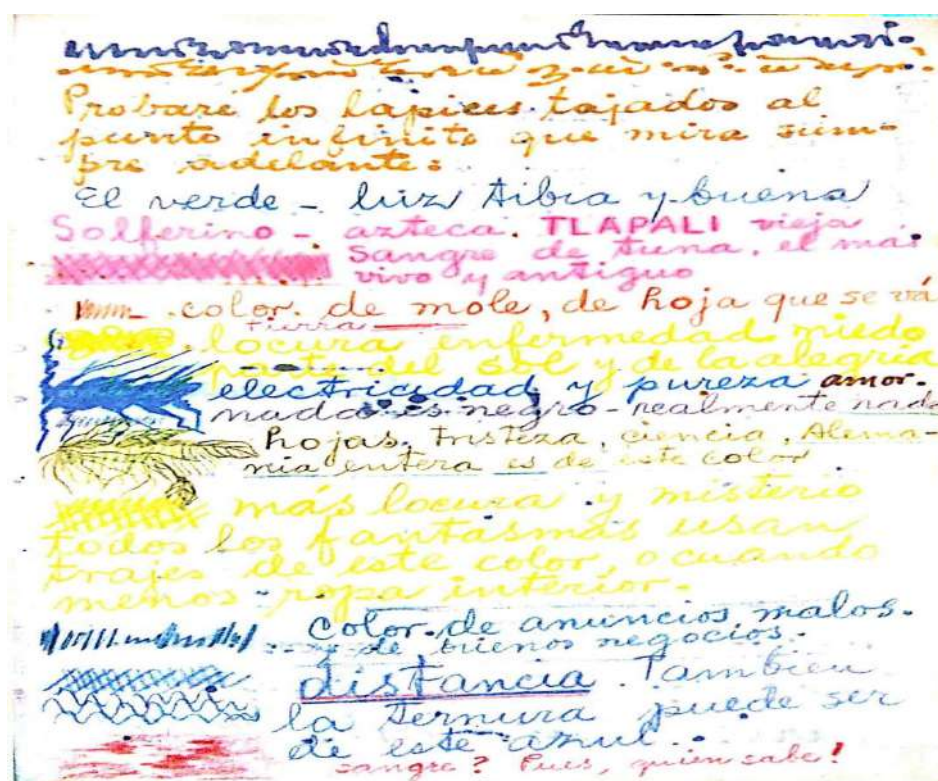 Probaré los lápices tajados al
punto infinito que mira siem-
pre adelante:
El verde – luz tibia y buena
Solferino – azteca. TLAPALI vieja
sangre de tuna, el más
vivo y antiguo
color de mole, de hoja que se vá
tierra
locura enfermedad miedo
parte del sol y de la alegría
electricidad y pureza amor.
nada es negro – realmente nada
hojas, tristeza, ciencia, Alema-
nia entera es de este color
más locura y misterio
todos los fantasmas usan
trajes de este color, o cuando
menos ropa interior.
color de anuncios malos.
y de buenos negocios.
distancia. Tambien
la ternura puede ser
de este azul.
sangre? Pues, quien sabe!